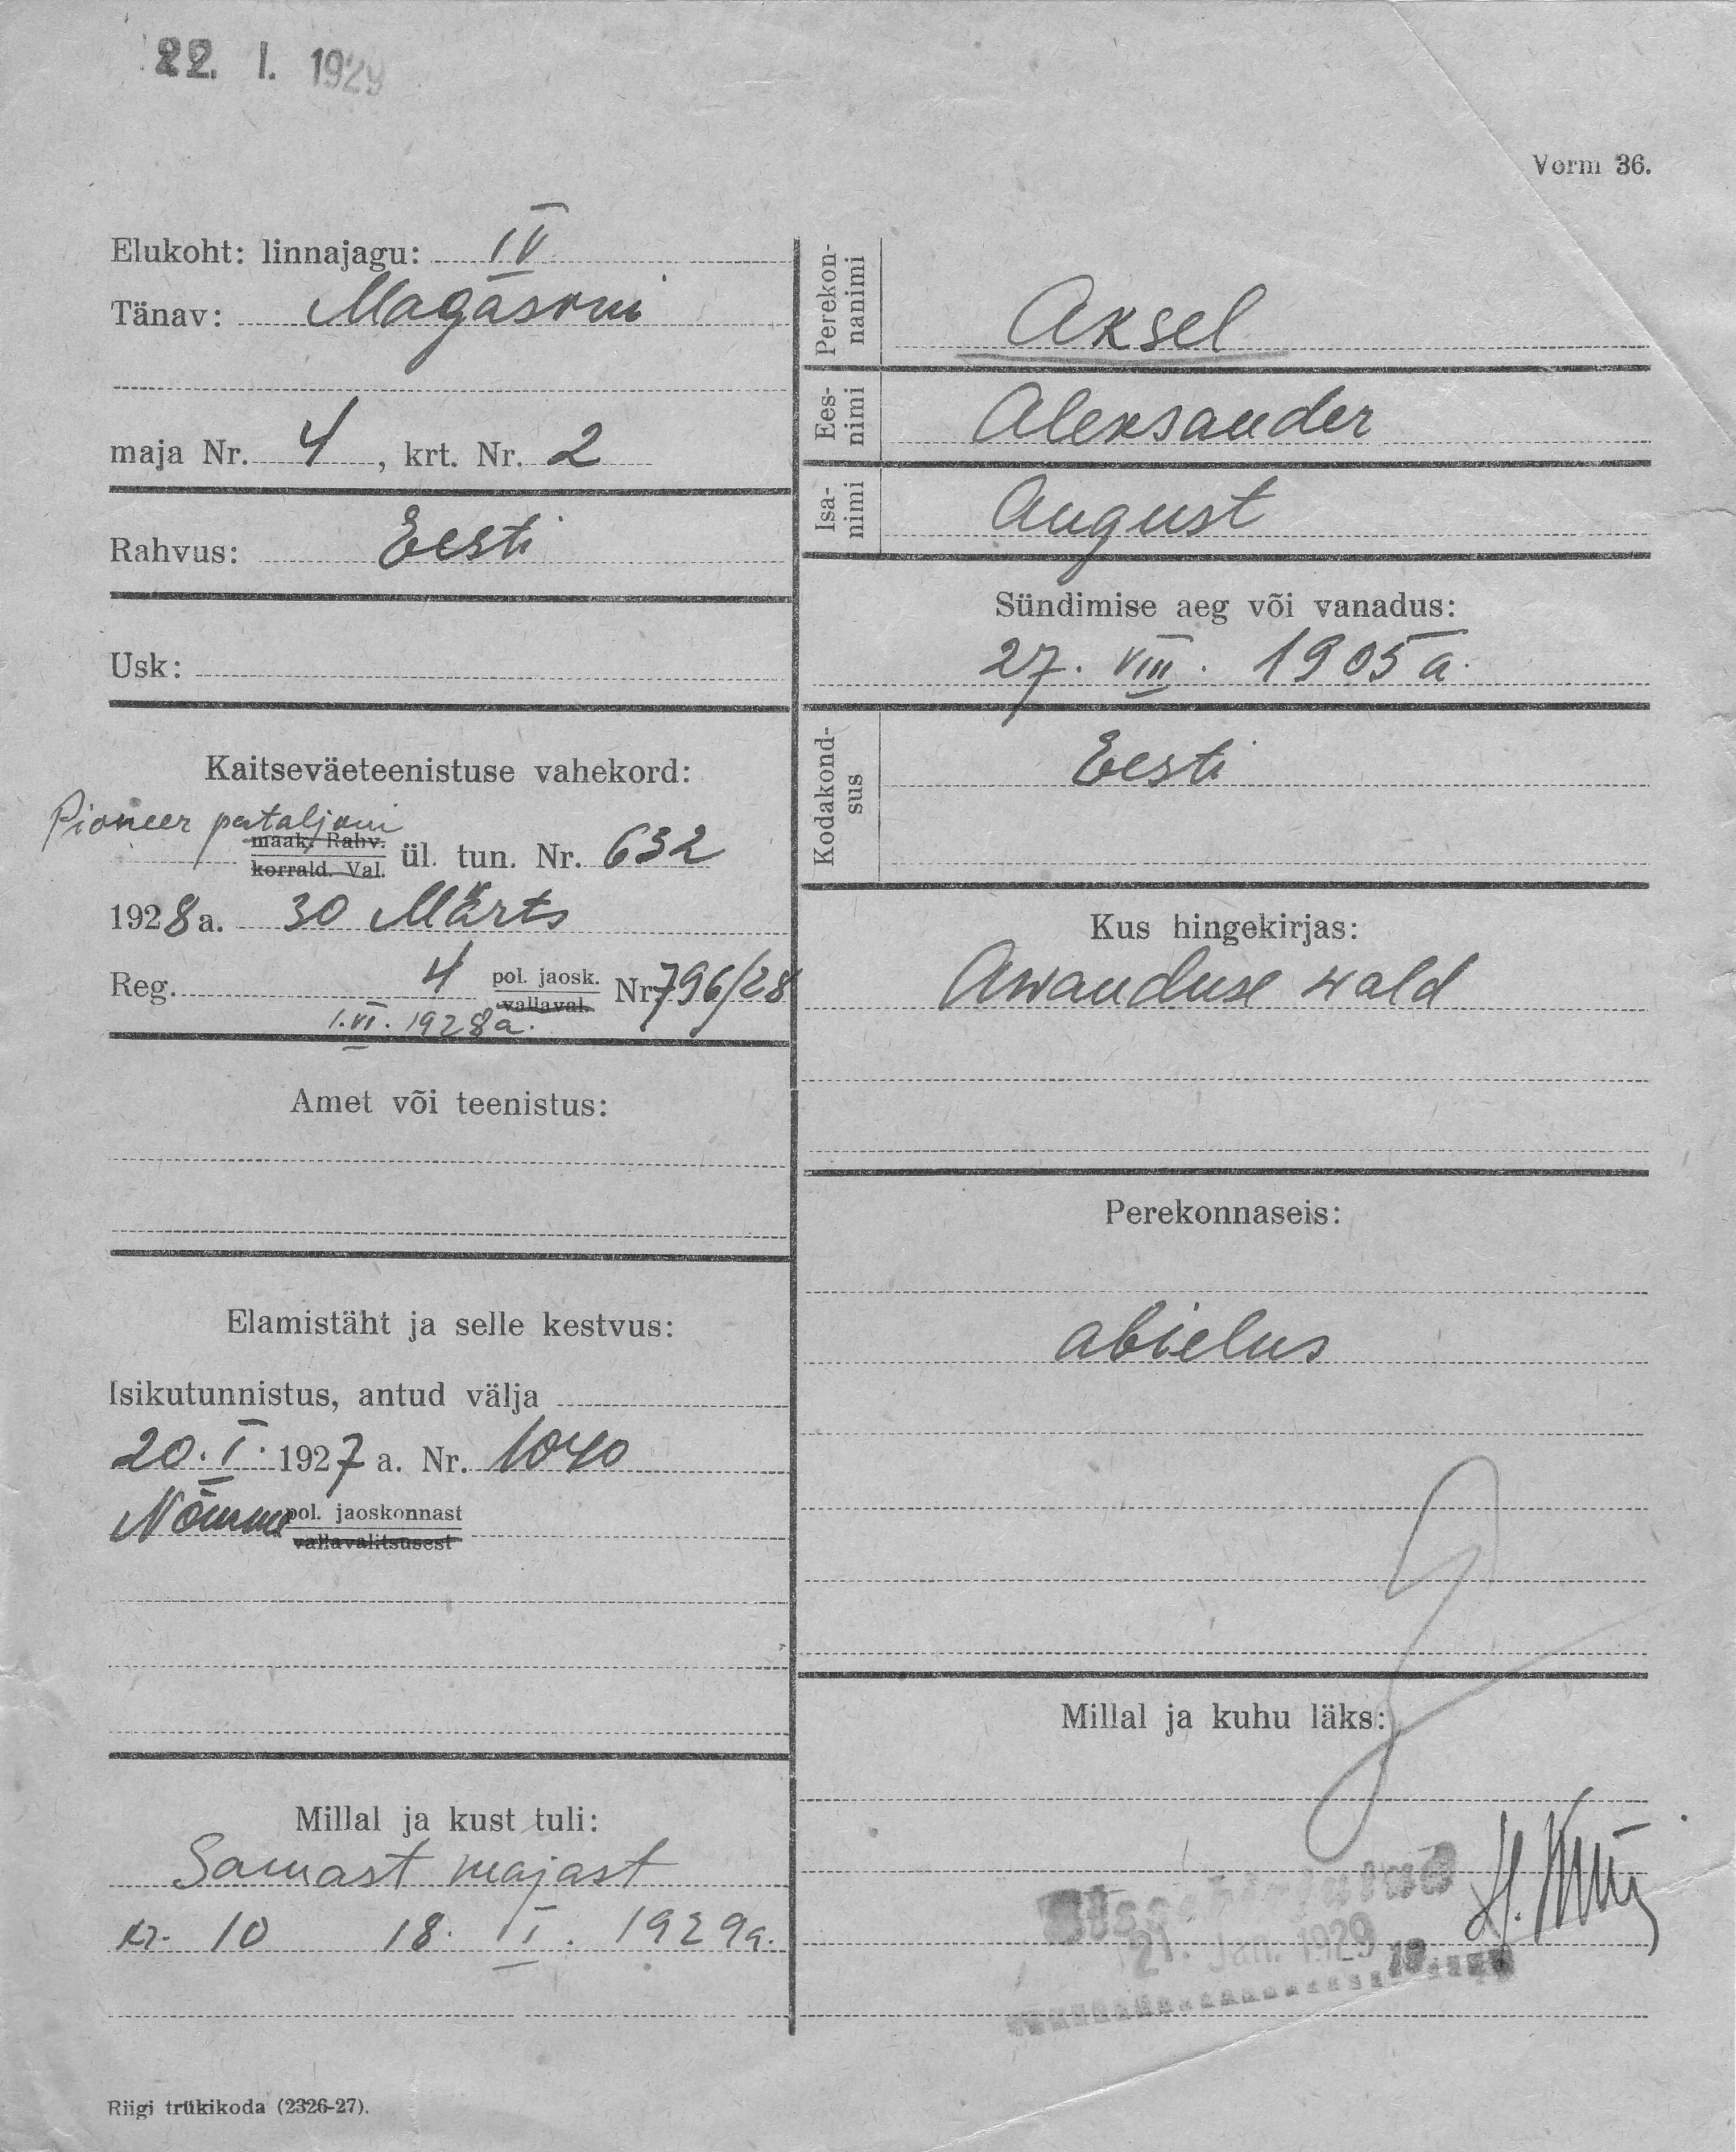 22. I. 1929
Vorm 36.
Elukoht: linnajagu: IV
Tänav: Magasini
maja Nr. 4, krt. Nr. 2
Rahvus: Eesti
Usk:
Kaitseväeteenistuse vahekord:
Pioneer pataljoni
maak. Rahv.
korrald. Val.
ül. tun. Nr. 632
1928 a. 30 Märts
Reg. 4 pol. jaosk. Nr 796/28
vallaval.
1. VI. 1928 a.
Amet või teenistus:
Elamistäht ja selle kestvus:
Isikutunnistus, antud välja
20. I. 1927 a. Nr. 1040
Nõmme pol. jaoskonnast
vallavalitsusest
Millal ja kust tuli:
Samast majast
kr. 10 18. I. 1929 a.
Riigi trükikoda (2326-27).
Perekon-
nanimi
Aksel
Ees-
nimi
Aleksander
Isa-
nimi
August
Sündimise aeg või vanadus:
27. VIII. 1905 a.
Kodakond-
sus
Eesti
Kus hingekirjas:
Awanduse wald
Perekonnaseis:
abielus
Millal ja kuhu läks:
Sissekirjutud
21. Jan. 1929 19